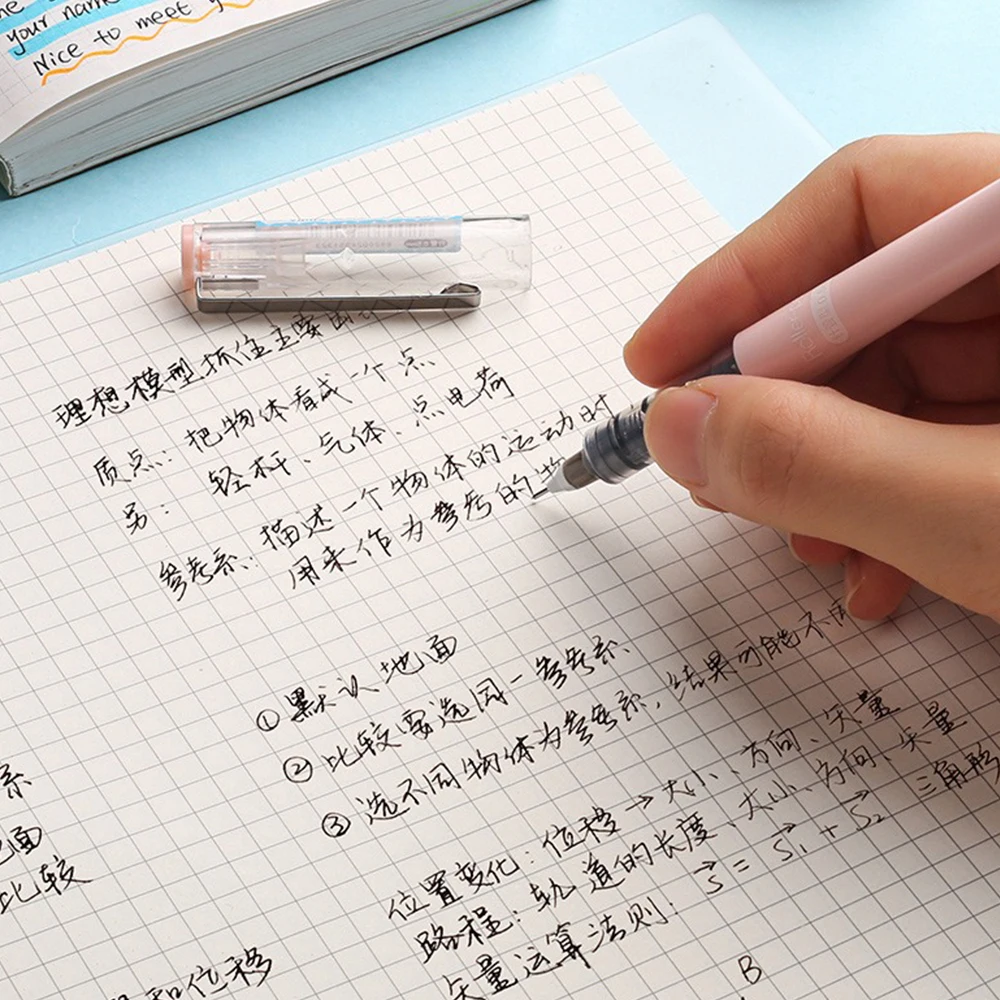 your name
Nice to meet
理想模型抓住主要
质点：把物体看成一个点
另：轻杆、气体、点电荷
参考系：描述一个物体的运动时
用来作为参考的物
①默认地面
②比较要选同一参考系
③选不同物体为参考系，结果可能不同
系
地面
比较
和位移
位置变化：位移→大小、方向、矢量
路程：轨道的长度、大小、方向、矢量
矢量运算法则：S = S₁ + S₂ 三角形
B
Roller